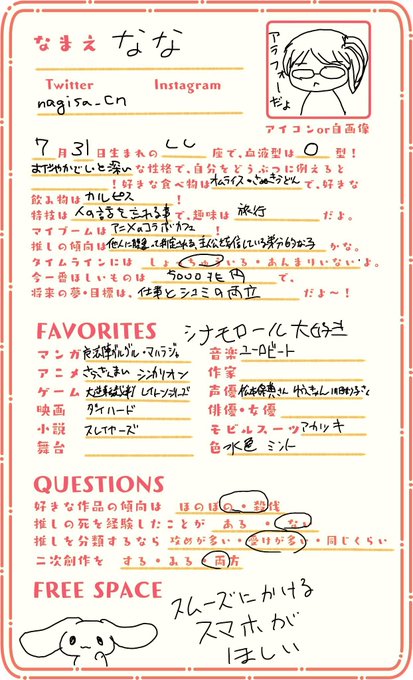 なまえ なな
Twitter Instagram
nagisa_cn
アラフォーだよ
アイコンor自画像
7月31日生まれの しし 座で、血液型は O 型！
な性格で、自分をどうぶつに例えると
！好きな食べ物は オムライス・さぬきうどん で、好きな
飲み物は カルピス ！
特技は 人の話を忘れる事 で、趣味は 旅行 だよ。
マイブームは アニメのコラボカフェ ！
推しの傾向は かな。
タイムラインには しょ ちゅういる・あんまりいない よ。
今一番ほしいものは 5000兆円 で、
将来の夢・目標は、仕事とシュミの両立 だよ～！
FAVORITES シナモロール大好き
マンガ 南国 音楽 ユーロビート
アニメ さらざんまい シンカリオン 作家
ゲーム 大逆転裁判 レイトンシリーズ 声優 松本保典さん
映画 ダイハード 俳優・女優
小説 スレイヤーズ モビルスーツ アカツキ
舞台 色 水色 ミント
QUESTIONS
好きな作品の傾向は ほのぼの・殺伐
推しの死を経験したことが ある・ない
推しを分類するなら 攻めが多い・受けが多い・同じくらい
二次創作を する・みる・両方
FREE SPACE
スムーズにかける
スマホが
ほしい